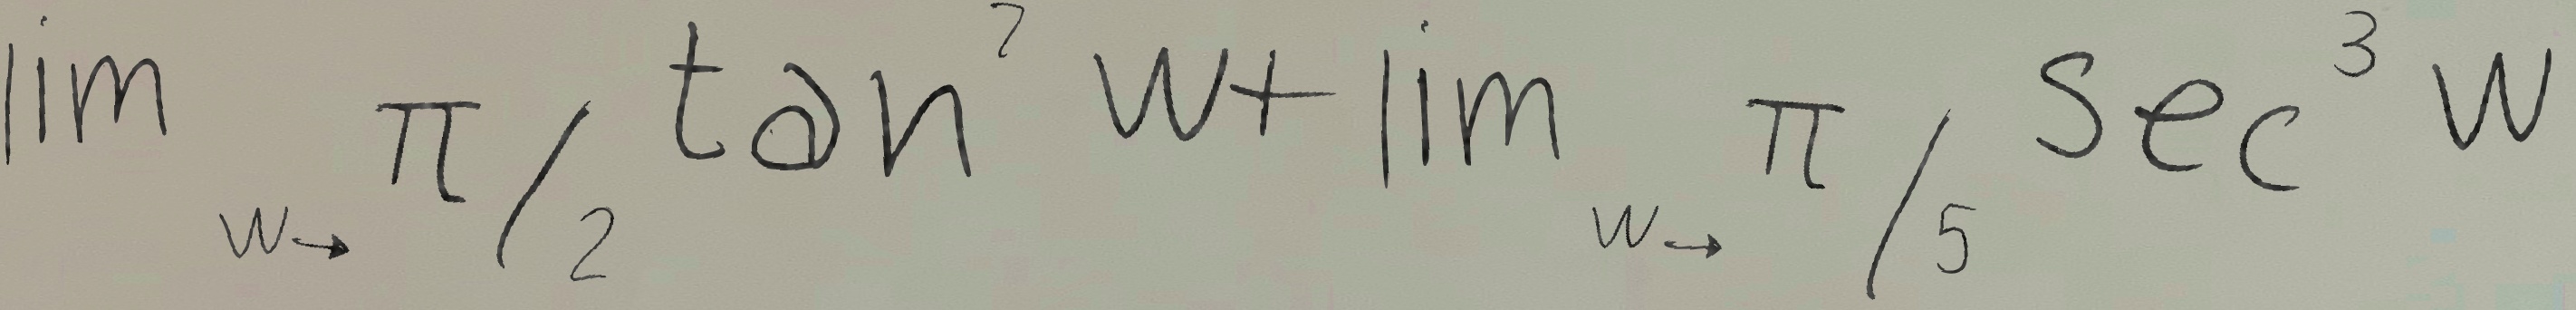 lim_{w→π/2} tan⁷ w + lim_{w→π/5} sec³ w